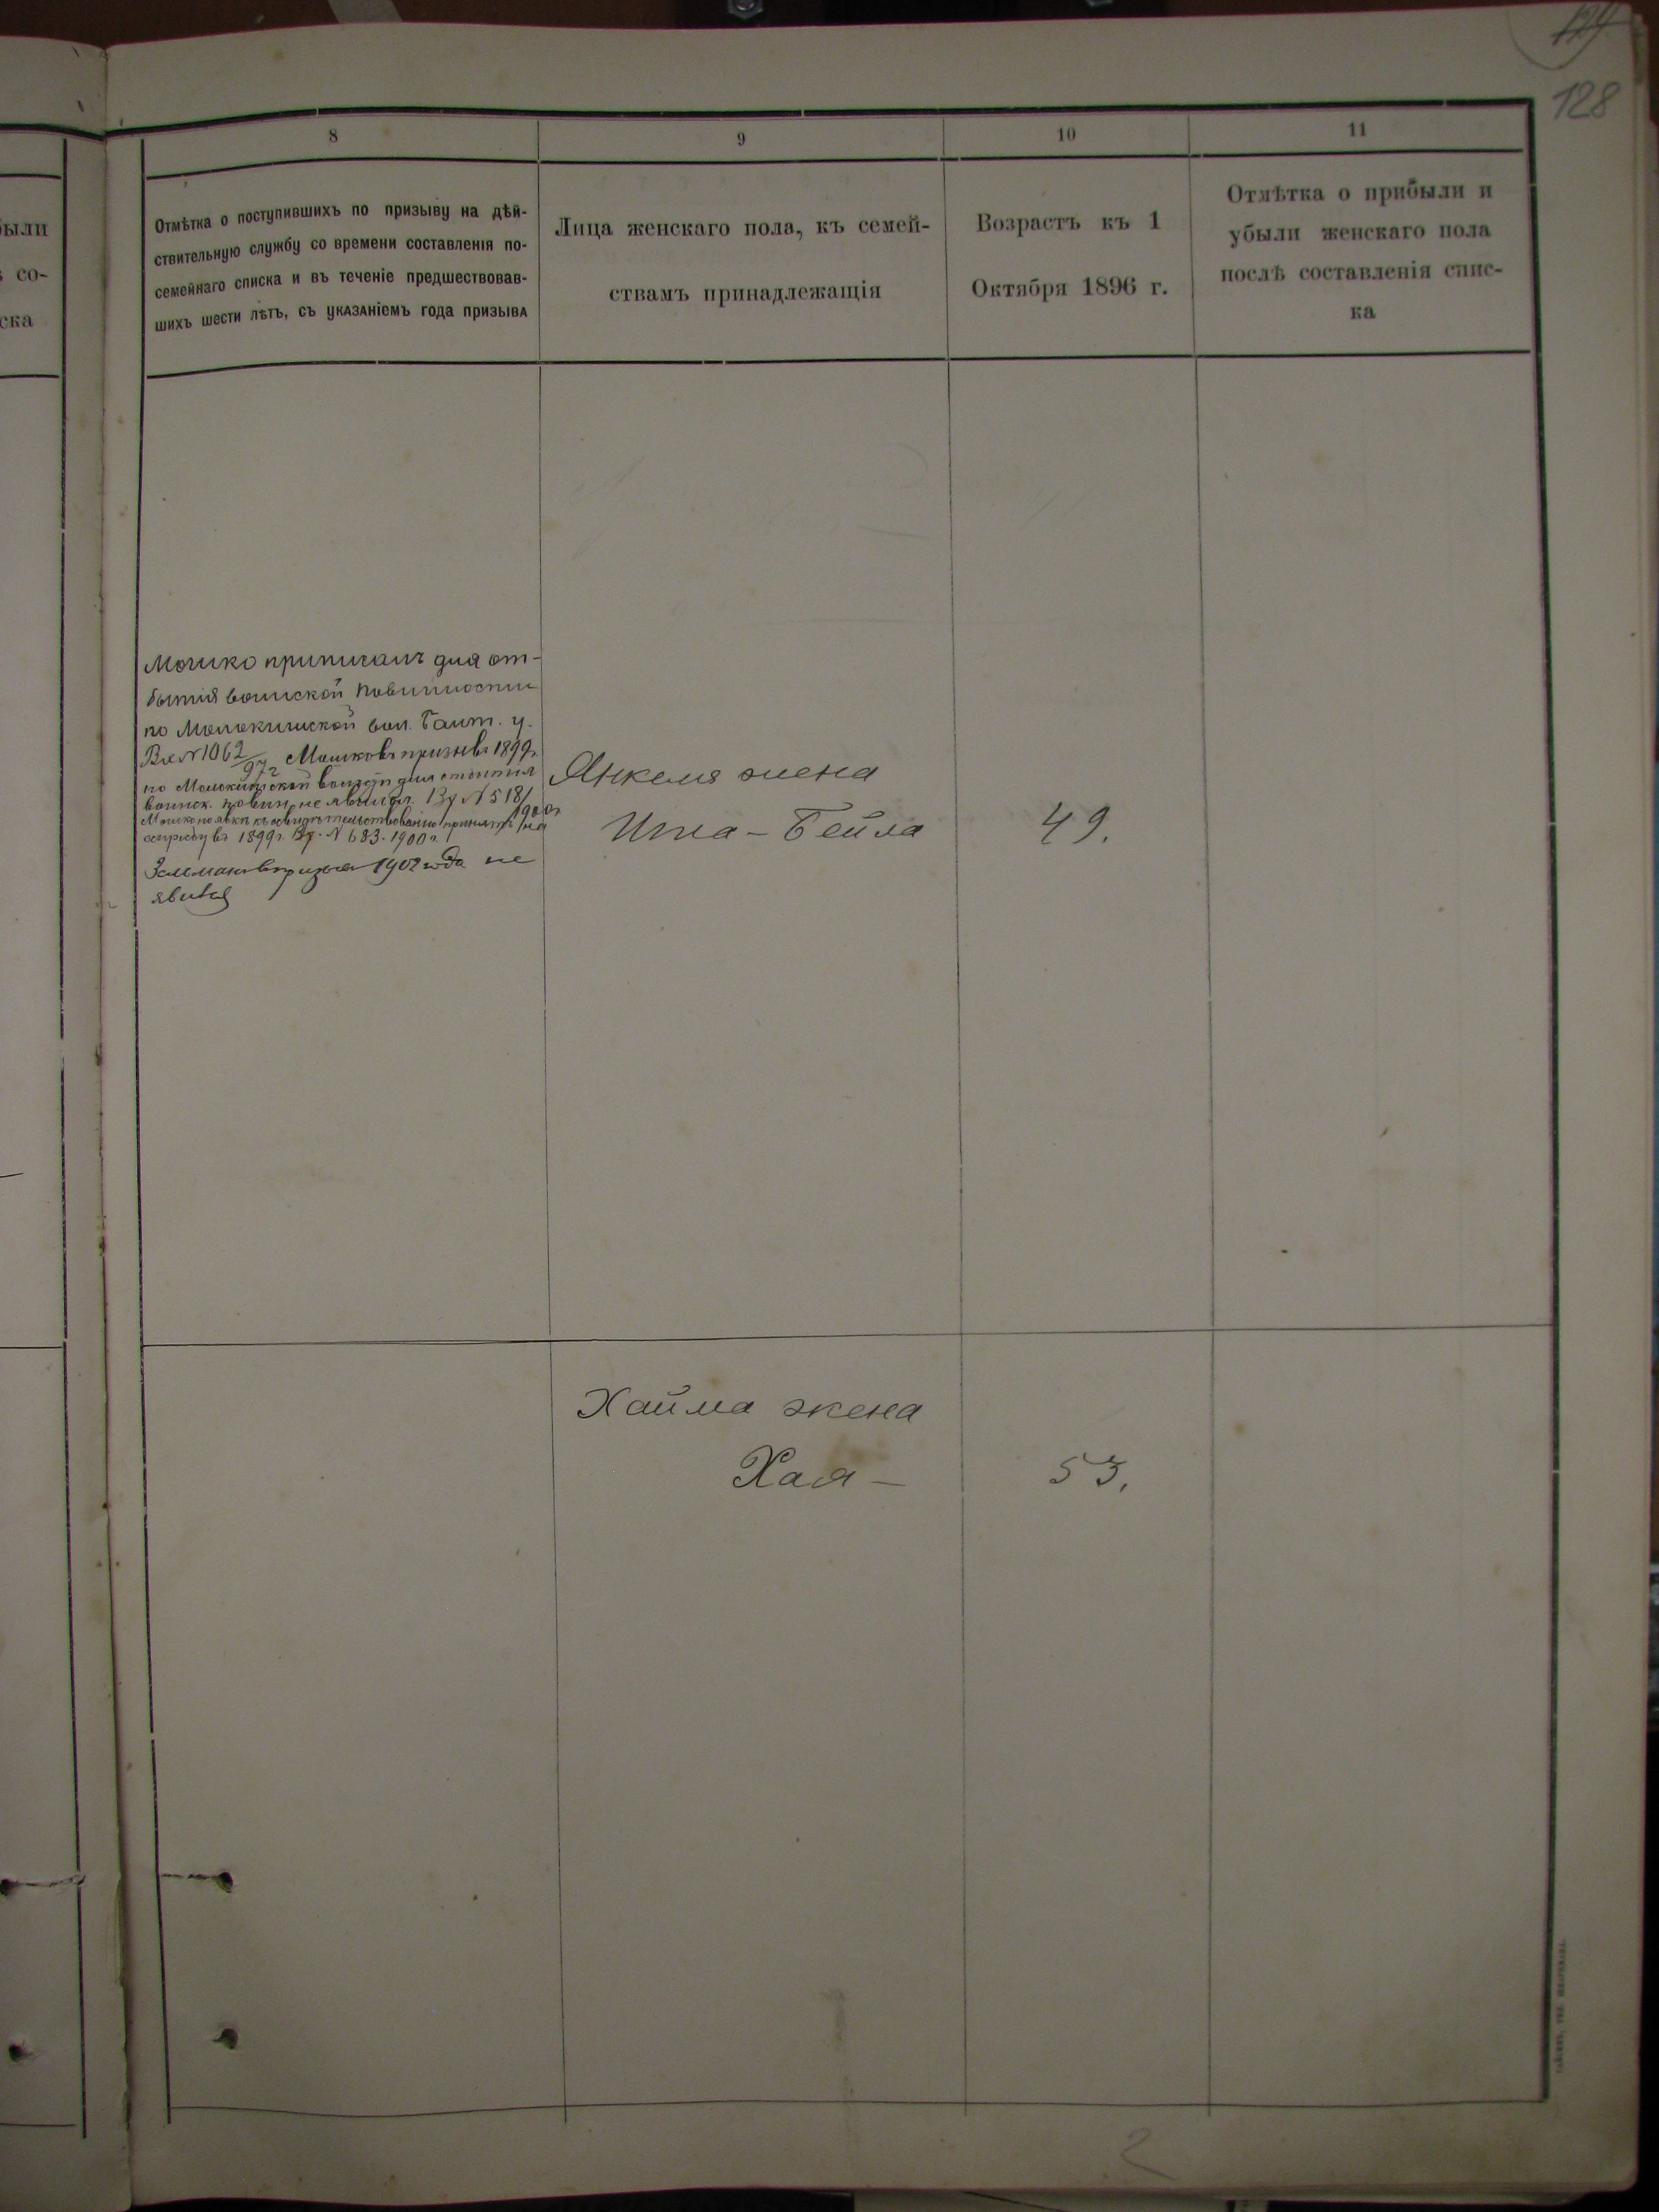 124
128
были
8
9
10
11
со-
ска
Отмѣтка о поступившихъ по призыву на дѣй-
ствительную службу со времени составленія по-
семейнаго списка и въ теченіе предшествовав-
шихъ шести лѣтъ, съ указаніемъ года призыва
Лица женскаго пола, къ семей-
ствамъ принадлежащія
Возрастъ къ 1
Октября 1896 г.
Отмѣтка о прибыли и
убыли женскаго пола
послѣ составленія спис-
ка
Мошко приписанъ для от-
бытія воинской повинности
по вол. у.
Вх № 1062/97 Мошко въ призывъ 1899 г.
по волости для отбытія
воинск. повин. не явился. Ву № 518/1900 г.
Мошко по явкѣ къ освидѣтельствованію принятъ на
службу въ 1899 г. Ву. № 683. 1900 г.
Залманъ въ призывъ 1902 года не
явился
Янкеля жена
Бейла
49.
Хайма жена
Хая —
53.
2